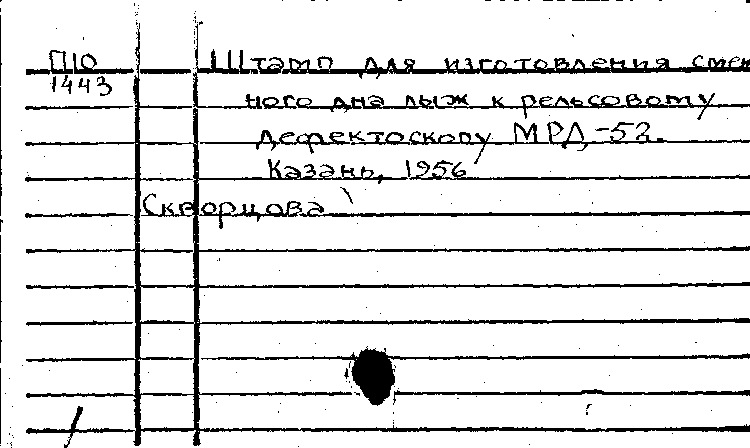 П10 Штамп для изготовления смен
1443
ного дна лыж к рельсовому
дефектоскопу МРД-52.
Казань, 1956
Скворцова